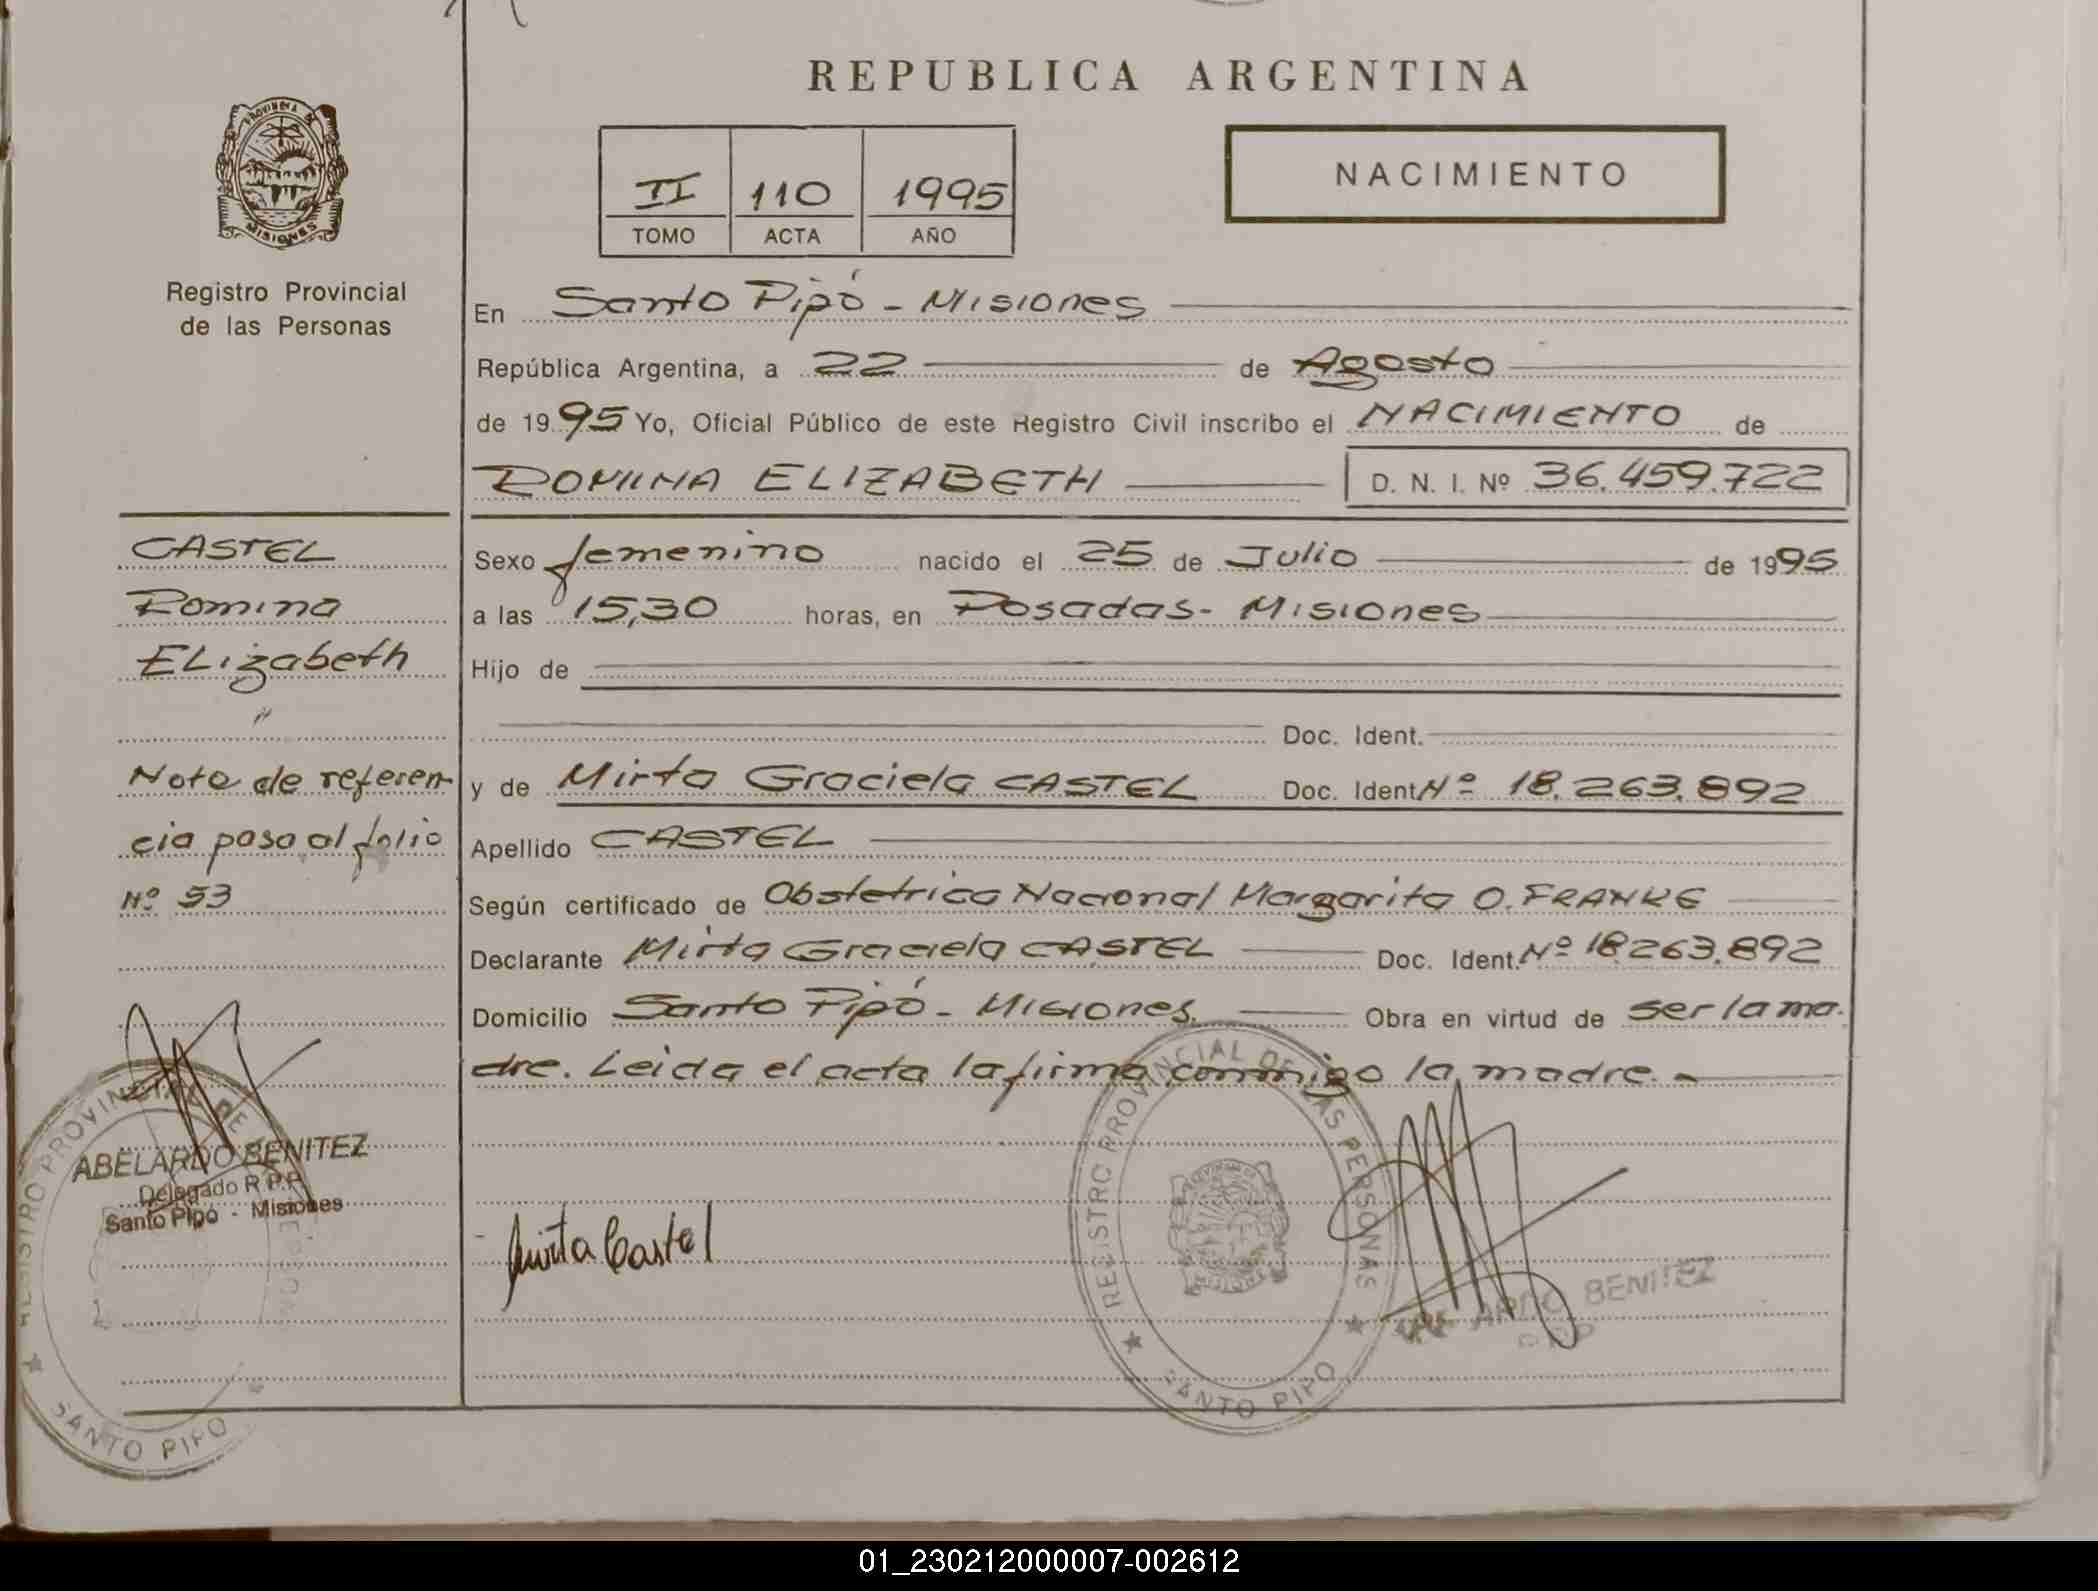 REPUBLICA ARGENTINA
PROVINCIA DE
MISIONES
Registro Provincial
de las Personas
II 110 1995
TOMO ACTA AÑO
NACIMIENTO
En Santo Pipó - Misiones
República Argentina, a 22 de Agosto
de 1995 Yo, Oficial Público de este Registro Civil inscribo el NACIMIENTO de
ROMINA ELIZABETH D. N. I. Nº 36.459.722
CASTEL
Romina
ELizabeth
"
Nota de referen-
cia pasa al folio
Nº 53
ABELARDO BENITEZ
Delegado R.P.P.
Santo Pipó - Misiones
REGISTRO PROVINCIAL DE
SANTO PIPO
Sexo femenino nacido el 25 de Julio de 1995
a las 15,30 horas, en Posadas - Misiones
Hijo de
Doc. Ident.
y de Mirta Graciela CASTEL Doc. Ident. Nº 18.263.892
Apellido CASTEL
Según certificado de Obstetrica Nacional Margarita O. FRANKE
Declarante Mirta Graciela CASTEL Doc. Ident. Nº 18.263.892
Domicilio Santo Pipó - Misiones. Obra en virtud de ser la ma-
dre. Leida el acta la firma conmigo la madre. -
Mirta Castel
REGISTRO PROVINCIAL DE LAS PERSONAS
PROVINCIA DE
MISIONES
SANTO PIPO
BENITEZ
01_230212000007-002612